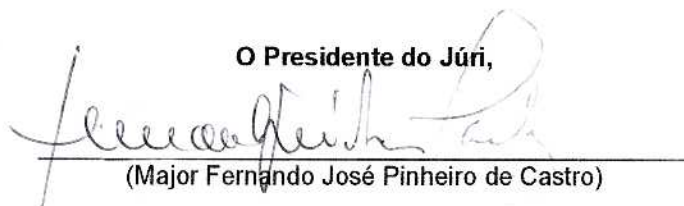 O Presidente do Júri,
(Major Fernando José Pinheiro de Castro)